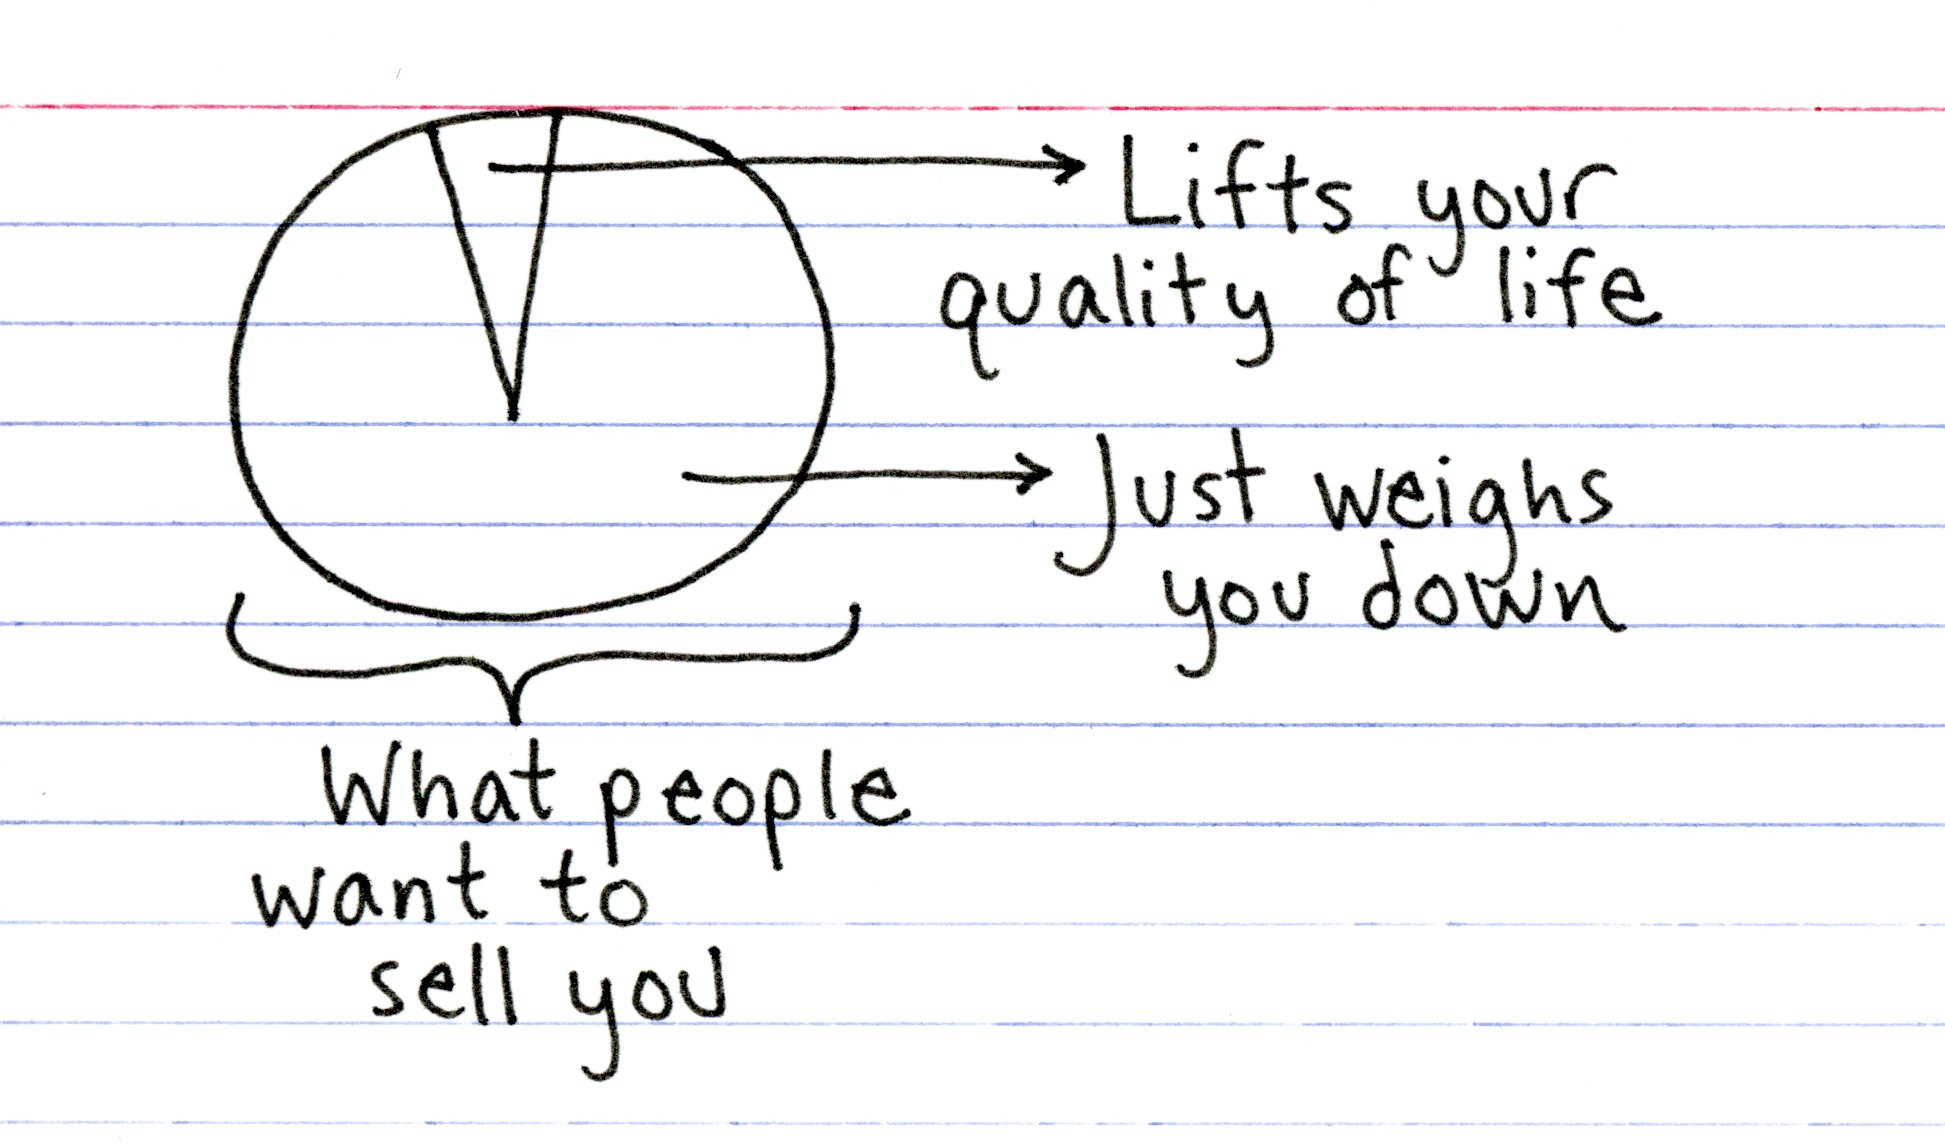 Lifts your
quality of life
Just weighs
you down
What people
want to
sell you